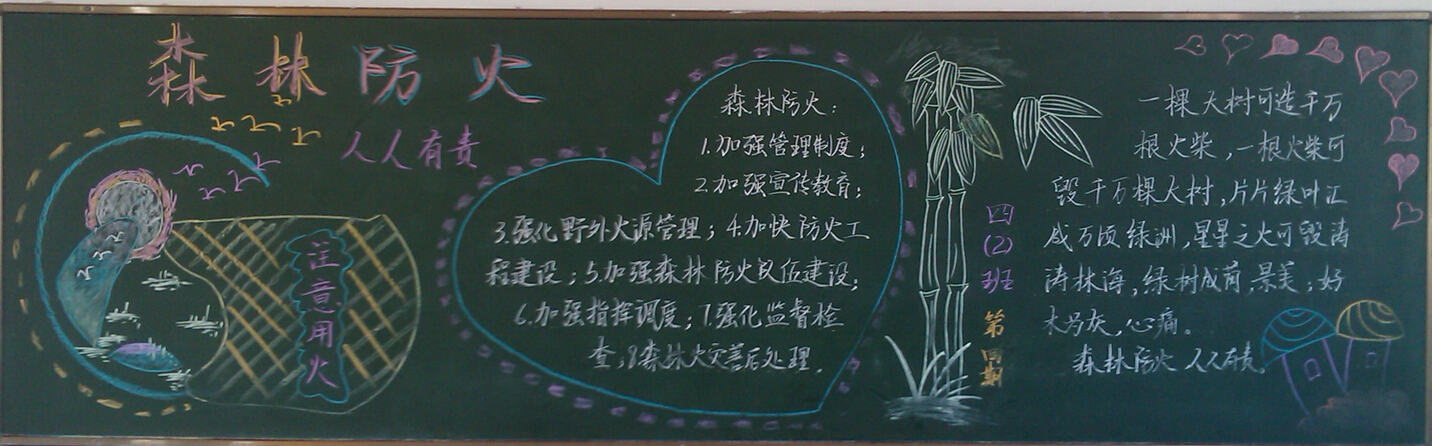 森林防火
人人有责
注意用火
森林防火：
1.加强管理制度；
2.加强宣传教育；
3.强化野外火源管理；4.加快防火工
程建设；5.加强森林防火队伍建设；
6.加强指挥调度；7.强化监督检
查；8森林火灾善后处理.
四(2)班
第四期
一棵大树可造千万
根火柴，一根火柴可
毁千万棵大树，片片绿叶汇
成万顷绿洲，星星之火可毁涛
涛林海，绿树成荫，景美；好
木为灰，心痛。
森林防火 人人有责。